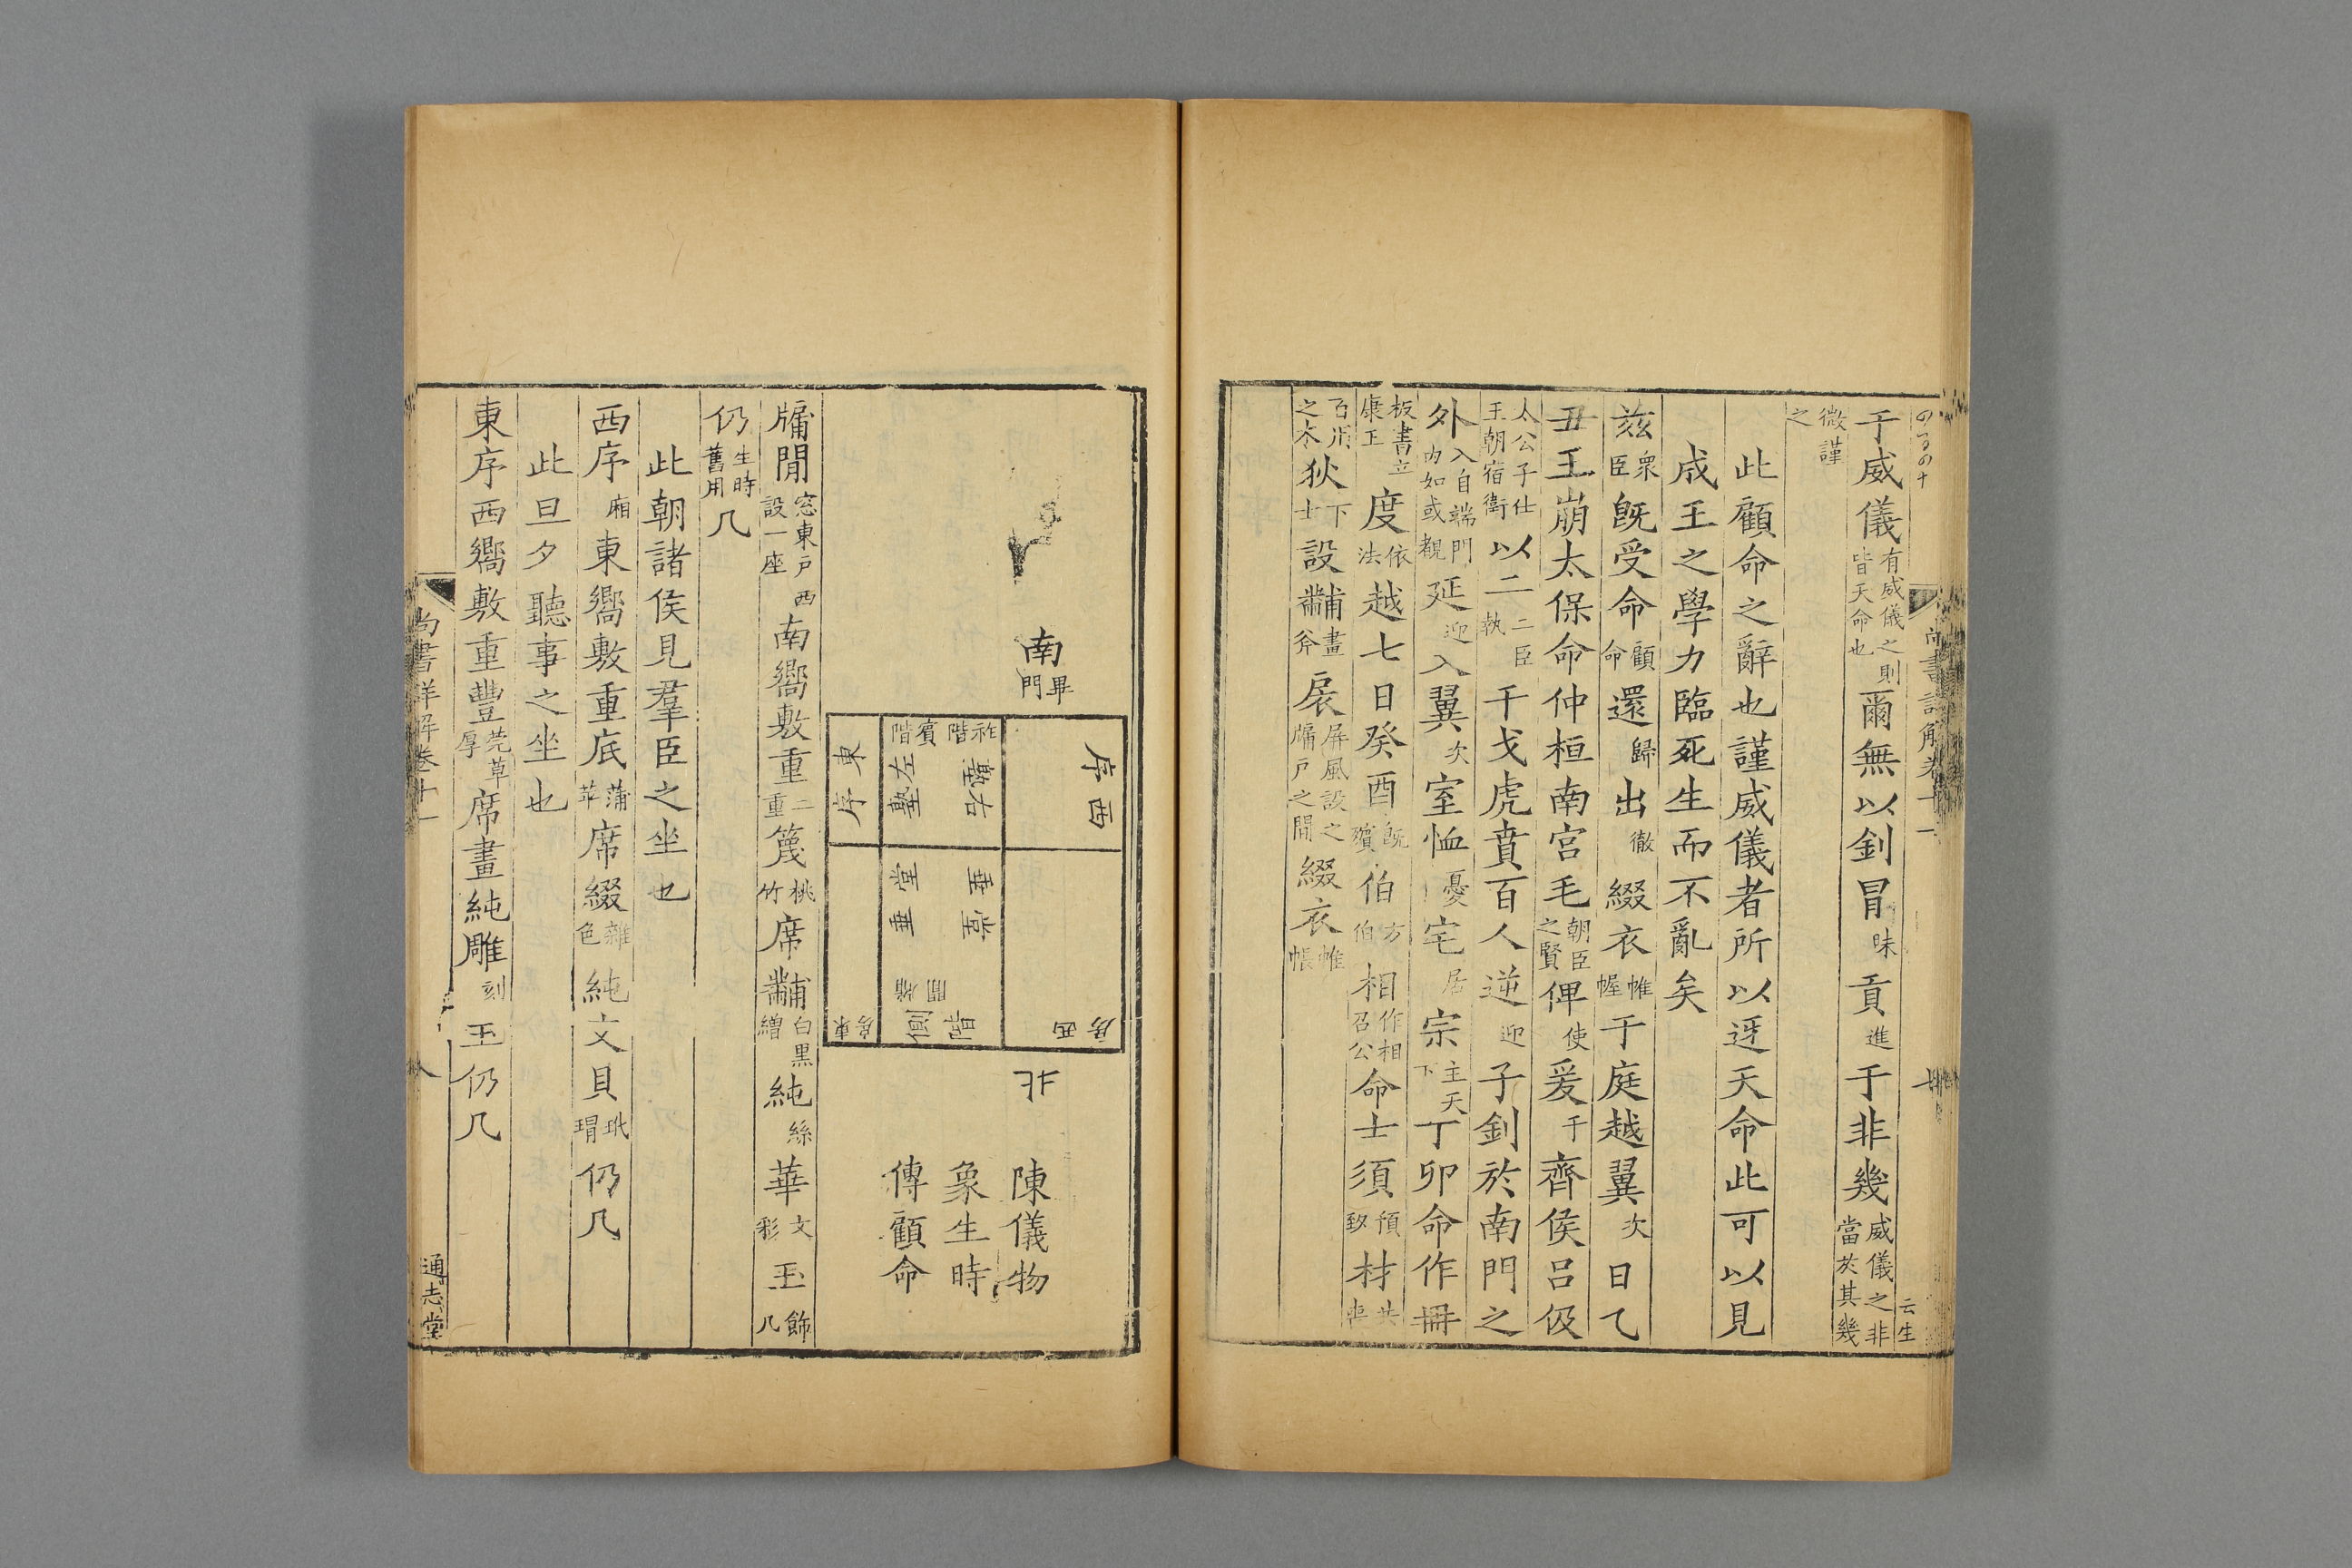 尚書詳解卷十一
云生
于威儀有威儀之則皆天命也爾無以釗冒昧貢進于非幾威儀之非當於其幾
微謹之
此顧命之辭也謹威儀者所以迓天命此可以見
成王之學力臨死生而不亂矣
茲衆臣既受命顧命還歸出徹綴衣帷幄于庭越翼次日乙
丑王崩太保命仲桓南宮毛朝臣之賢俾使爰于齊侯呂伋
太公子仕王朝宿衛以二二臣執干戈虎賁百人逆迎子釗於南門之
外入自端門內如或觀延迎入翼次室恤憂宅居宗主天下丁卯命作冊
板書立康王度依法越七日癸酉既殯伯方伯相作相召公命士須預致材共喪
之木狄下士設黼畫斧扆屏風設之牖戶之間綴衣帷帳
南
畢門
西序
阼階
賓階
塾右
左塾
東序
堂垂
堂垂
牖間
側階
西房
東房
北
陳儀物
象生時
傳顧命
牖間窓東戶西設一座南嚮敷重二重篾桃竹席黼白黑繒純絲華文彩玉飾几
仍生時舊用几
此朝諸侯見羣臣之坐也
西序廂東嚮敷重底蒲苹席綴雜色純文貝玳瑁仍几
此旦夕聽事之坐也
東序西嚮敷重豐莞草厚席畫純雕刻玉仍几
尚書詳解卷十一
通志堂